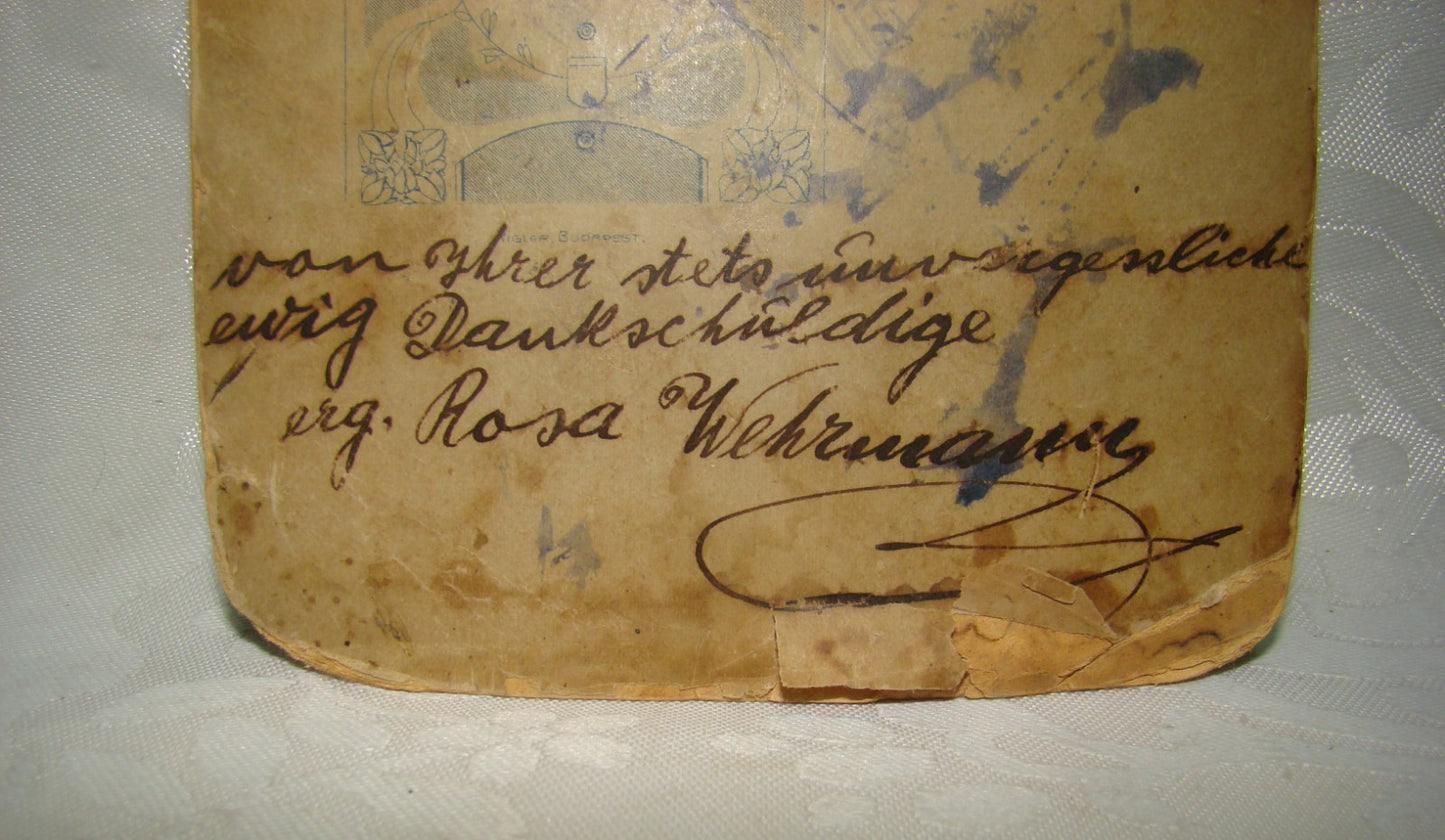 IGLER, BUDAPEST.
von Ihrer stets unvergessliche
ewig Dankschuldige
erg. Rosa Wehrmann